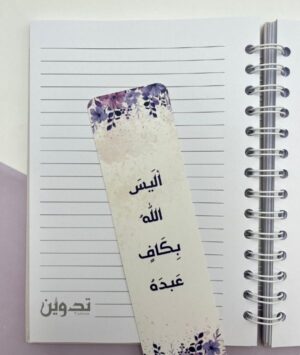 أَلَيسَ
اللهُ
بِكَافٍ
عَبدَهُ
تدوين